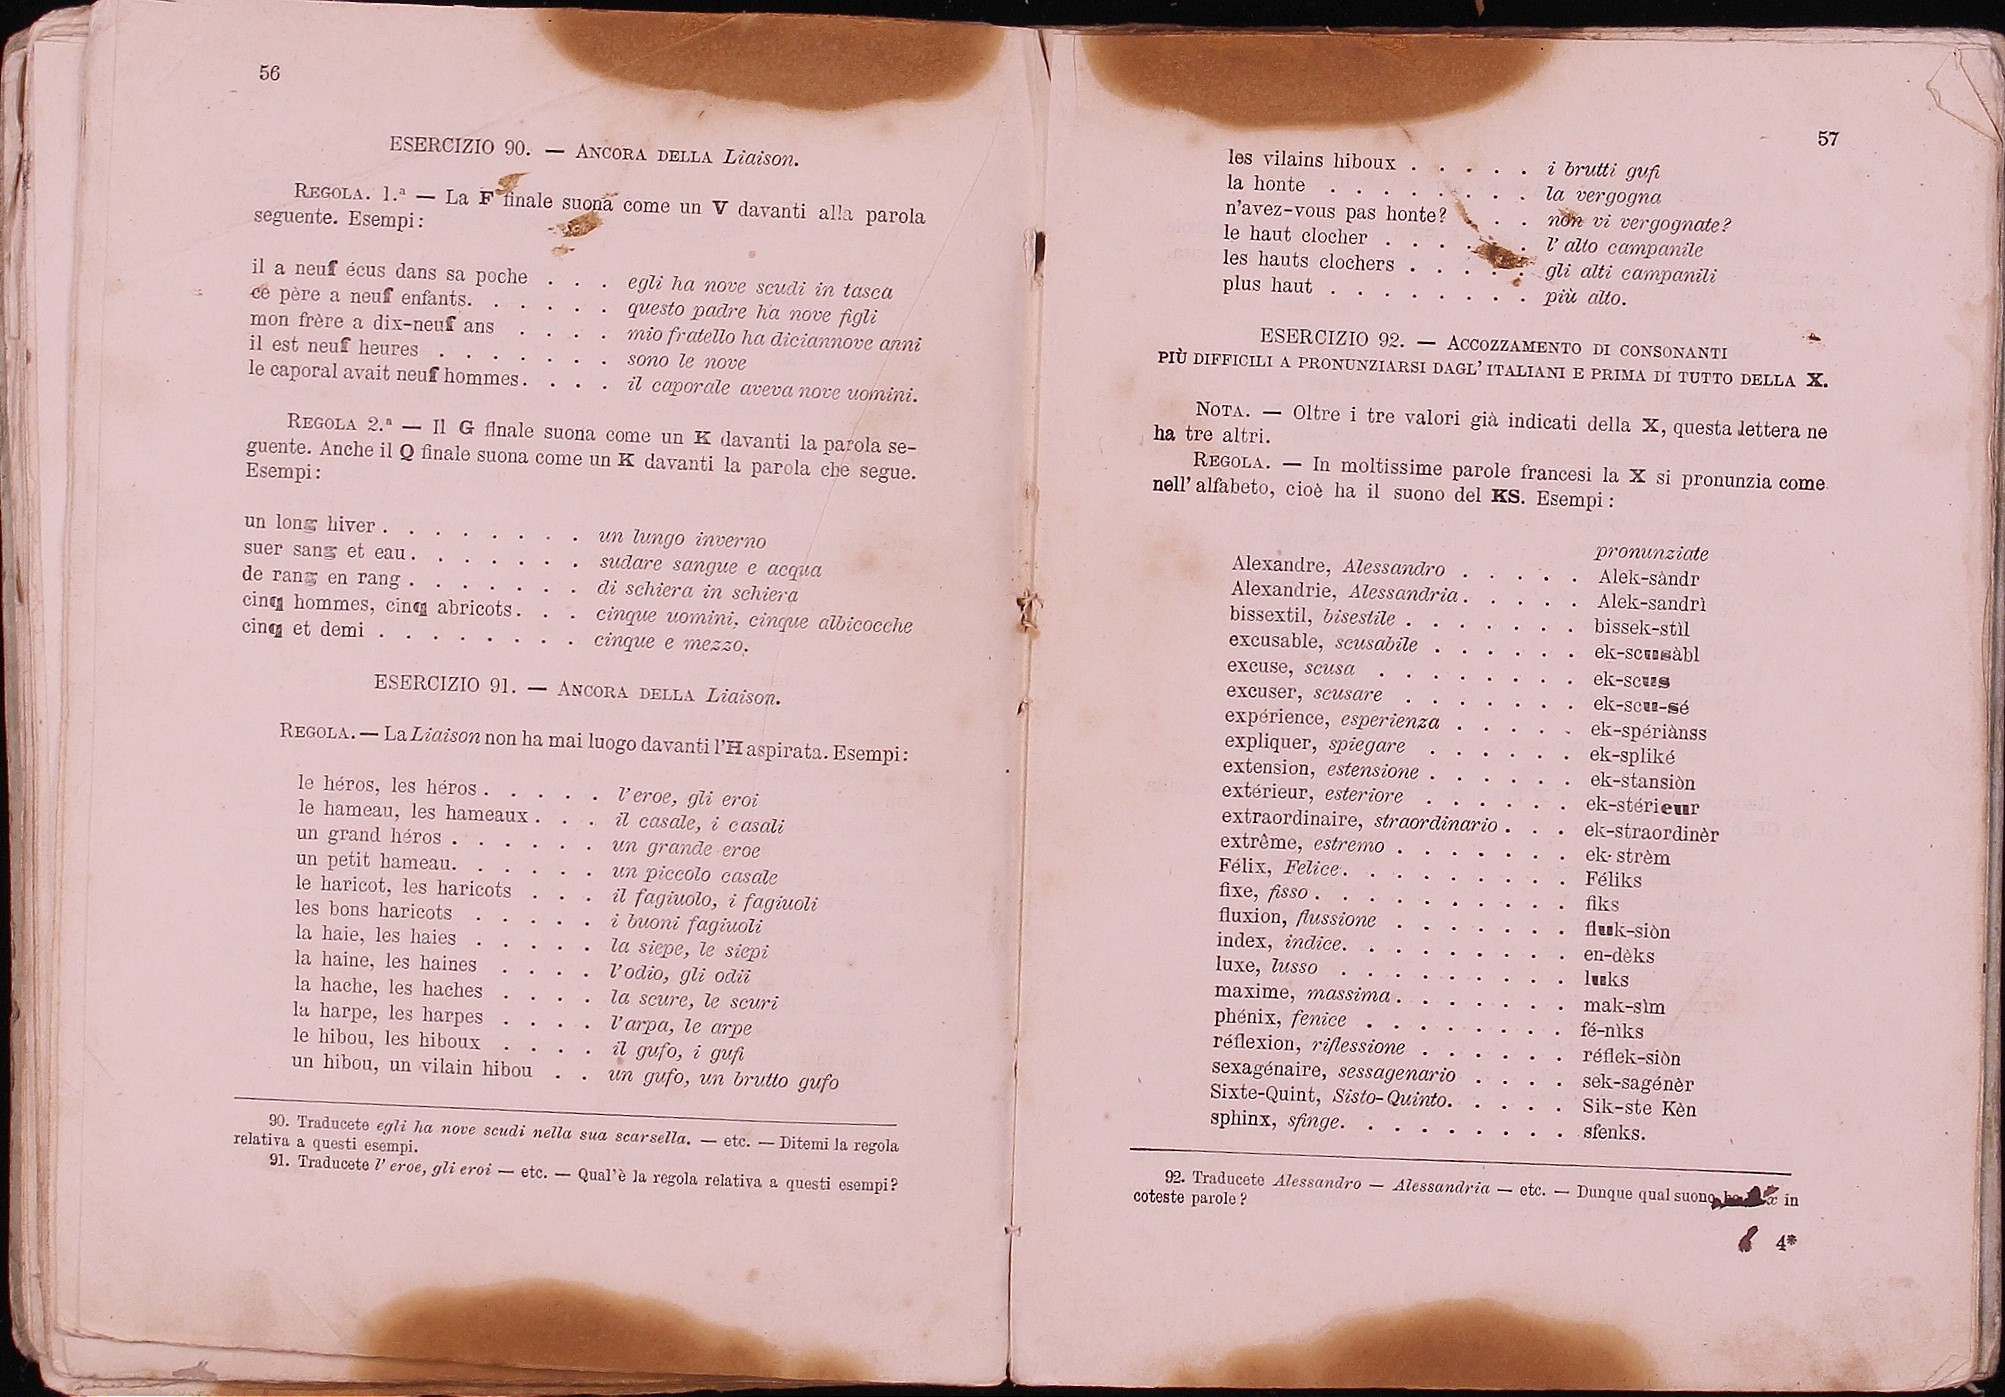 56
ESERCIZIO 90. — ANCORA DELLA Liaison.
REGOLA. 1.ª — La F finale suona come un V davanti alla parola
seguente. Esempi:
il a neuf écus dans sa poche . . . egli ha nove scudi in tasca
ce père a neuf enfants. . . . . . questo padre ha nove figli
mon frère a dix-neuf ans . . . . mio fratello ha diciannove anni
il est neuf heures . . . . . . . sono le nove
le caporal avait neuf hommes. . . . il caporale aveva nove uomini.
REGOLA 2.ª — Il G finale suona come un K davanti la parola se-
guente. Anche il Q finale suona come un K davanti la parola che segue.
Esempi:
un long hiver . . . . . . . . un lungo inverno
suer sang et eau. . . . . . . sudare sangue e acqua
de rang en rang . . . . . . . di schiera in schiera
cinq hommes, cinq abricots. . . cinque uomini, cinque albicocche
cinq et demi . . . . . . . . cinque e mezzo.
ESERCIZIO 91. — ANCORA DELLA Liaison.
REGOLA. — La Liaison non ha mai luogo davanti l'H aspirata. Esempi:
le héros, les héros . . . . . l'eroe, gli eroi
le hameau, les hameaux . . . il casale, i casali
un grand héros . . . . . . un grande eroe
un petit hameau. . . . . . un piccolo casale
le haricot, les haricots . . . il fagiuolo, i fagiuoli
les bons haricots . . . . . i buoni fagiuoli
la haie, les haies . . . . . la siepe, le siepi
la haine, les haines . . . . l'odio, gli odii
la hache, les haches . . . . la scure, le scuri
la harpe, les harpes . . . . l'arpa, le arpe
le hibou, les hiboux . . . . il gufo, i gufi
un hibou, un vilain hibou . . un gufo, un brutto gufo
90. Traducete egli ha nove scudi nella sua scarsella. — etc. — Ditemi la regola
relativa a questi esempi.
91. Traducete l'eroe, gli eroi — etc. — Qual'è la regola relativa a questi esempi?
57
les vilains hiboux . . . . . i brutti gufi
la honte . . . . . . . . la vergogna
n'avez-vous pas honte? . . . non vi vergognate?
le haut clocher . . . . . . l'alto campanile
les hauts clochers . . . . . gli alti campanili
plus haut . . . . . . . . più alto.
ESERCIZIO 92. — ACCOZZAMENTO DI CONSONANTI
PIÙ DIFFICILI A PRONUNZIARSI DAGL'ITALIANI E PRIMA DI TUTTO DELLA X.
NOTA. — Oltre i tre valori già indicati della X, questa lettera ne
ha tre altri.
REGOLA. — In moltissime parole francesi la X si pronunzia come
nell'alfabeto, cioè ha il suono del KS. Esempi:
pronunziate
Alexandre, Alessandro . . . . . Alek-sàndr
Alexandrie, Alessandria . . . . . Alek-sandrì
bissextil, bisestile . . . . . . . bissek-stìl
excusable, scusabile . . . . . . ek-scusàbl
excuse, scusa . . . . . . . . ek-scus
excuser, scusare . . . . . . . ek-scu-sé
expérience, esperienza . . . . . ek-spériànss
expliquer, spiegare . . . . . . ek-spliké
extension, estensione . . . . . . ek-stansiòn
extérieur, esteriore . . . . . . ek-stérieur
extraordinaire, straordinario . . . ek-straordinèr
extrême, estremo . . . . . . . ek-strèm
Félix, Felice. . . . . . . . . Féliks
fixe, fisso . . . . . . . . . . fiks
fluxion, flussione . . . . . . . fluk-siòn
index, indice. . . . . . . . . en-dèks
luxe, lusso . . . . . . . . . luks
maxime, massima . . . . . . . mak-sìm
phénix, fenice . . . . . . . . fé-nìks
réflexion, riflessione . . . . . . réflek-siòn
sexagénaire, sessagenario . . . . sek-sagénèr
Sixte-Quint, Sisto-Quinto. . . . . Sik-ste Kèn
sphinx, sfinge. . . . . . . . . sfenks.
92. Traducete Alessandro — Alessandria — etc. — Dunque qual suono x in
coteste parole?
4*